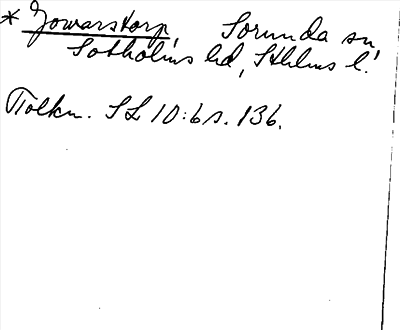 * Jowarstorp, Sorunda sn,
Sotholms hd, Sthlms l.
Tolkn. SL 10:6 s. 136.